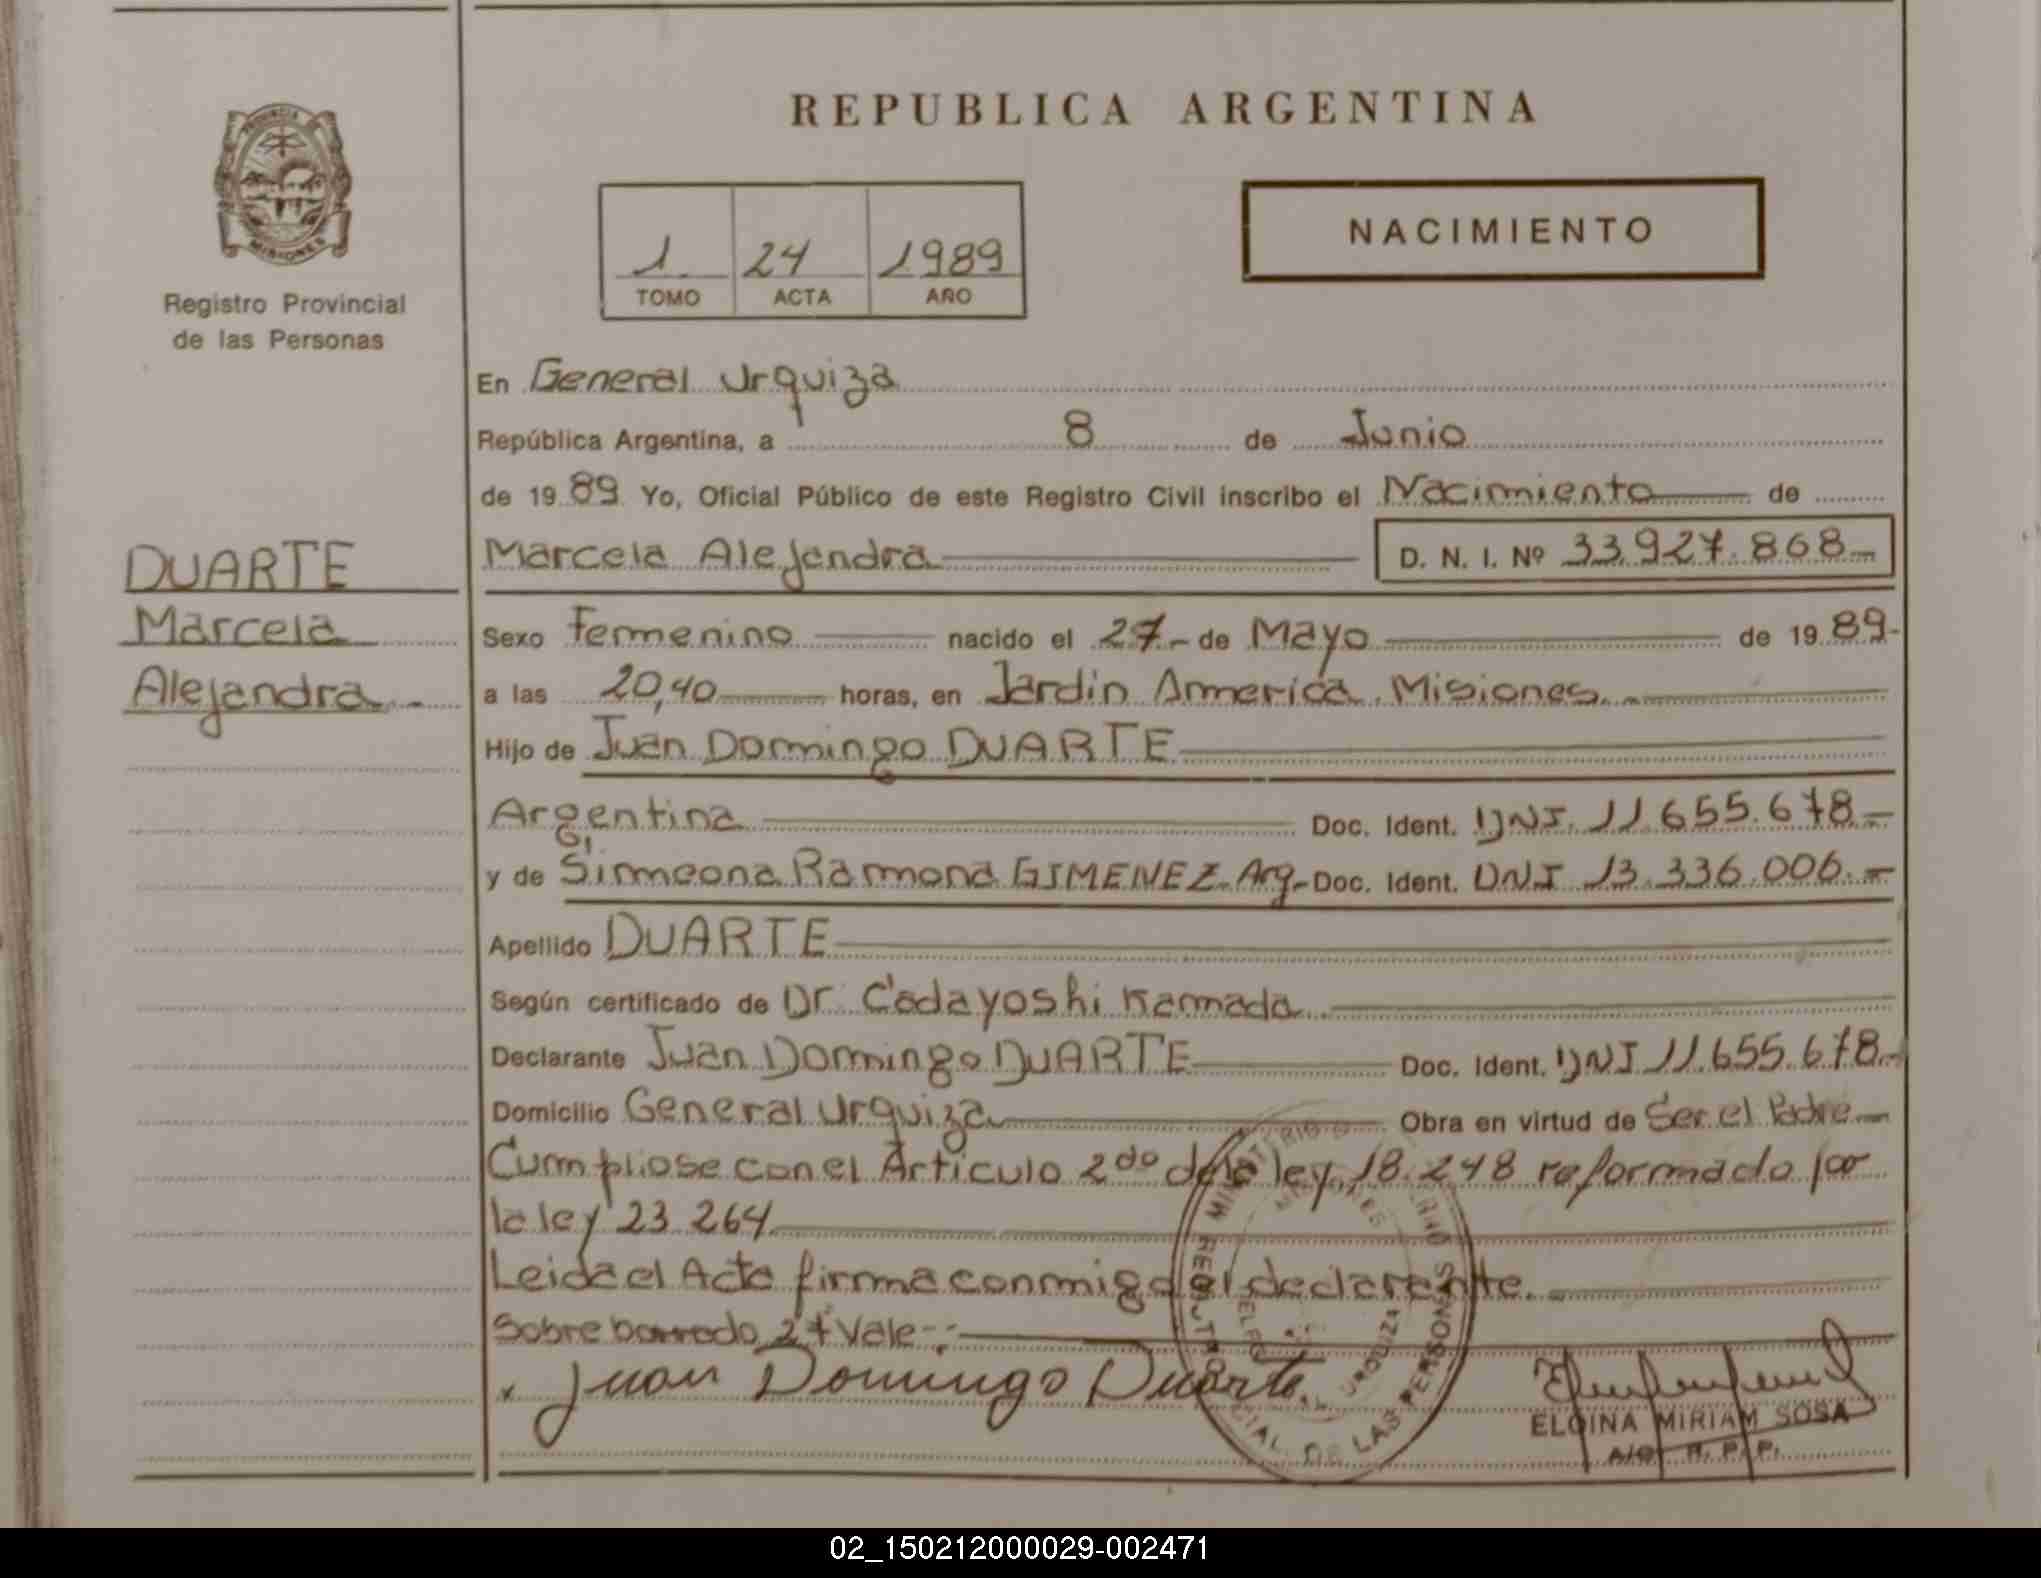 REPUBLICA ARGENTINA
PROVINCIA
MISIONES
Registro Provincial
de las Personas
1 24 1989
TOMO ACTA AÑO
NACIMIENTO
En General Urquiza
República Argentina, a 8 de Junio
de 1989 Yo, Oficial Público de este Registro Civil inscribo el Nacimiento de
DUARTE
Marcela
Alejandra.-
Marcela Alejandra D. N. I. Nº 33.927.868-
Sexo Femenino nacido el 27- de Mayo de 1989-
a las 20,40 horas, en Jardin America. Misiones.-
Hijo de Juan Domingo DUARTE
Argentina Doc. Ident. DNI. 11.655.678.-
y de Simeona Ramona GIMENEZ. Arg- Doc. Ident. DNI 13.336.006.-
Apellido DUARTE
Según certificado de Dr. Cadayoshi Kamada.
Declarante Juan Domingo DUARTE Doc. Ident. DNI 11.655.678.-
Domicilio General Urquiza Obra en virtud de Ser el Padre
Cumpliose con el Articulo 2do de la ley 18.248 reformado por
la ley 23.264
Leida el Acta firma conmigo el declarante.
Sobre borrado 27 Vale-
x Juan Domingo Duarte
REGISTRO PROVINCIAL DE LAS PERSONAS
MISIONES
URQUIZA
ELOINA MIRIAM SOSA
A/C. R. P. P.
02_150212000029-002471